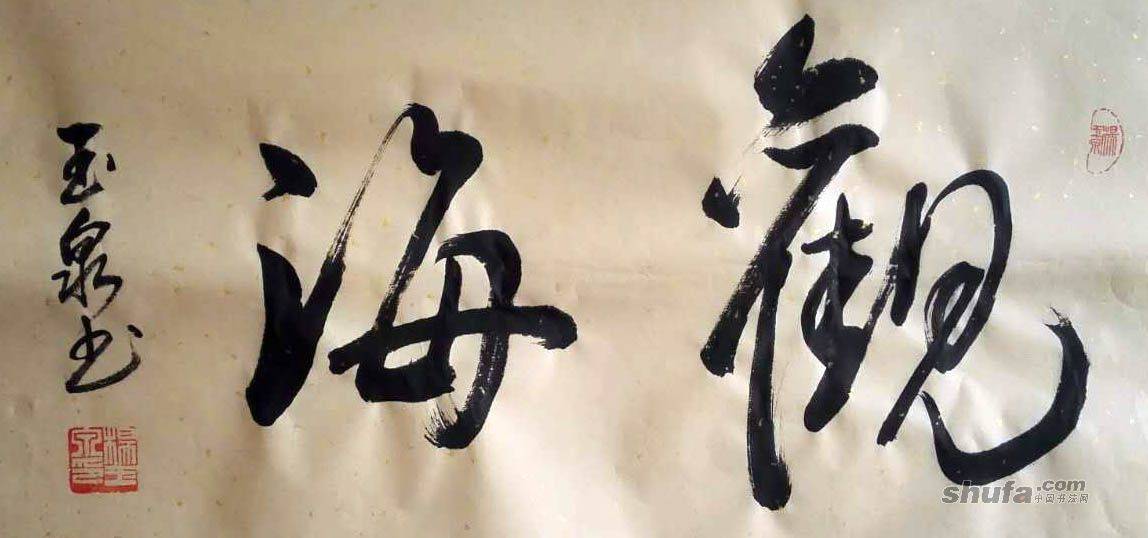 觀海
玉泉书
shufa.com
中国书法网